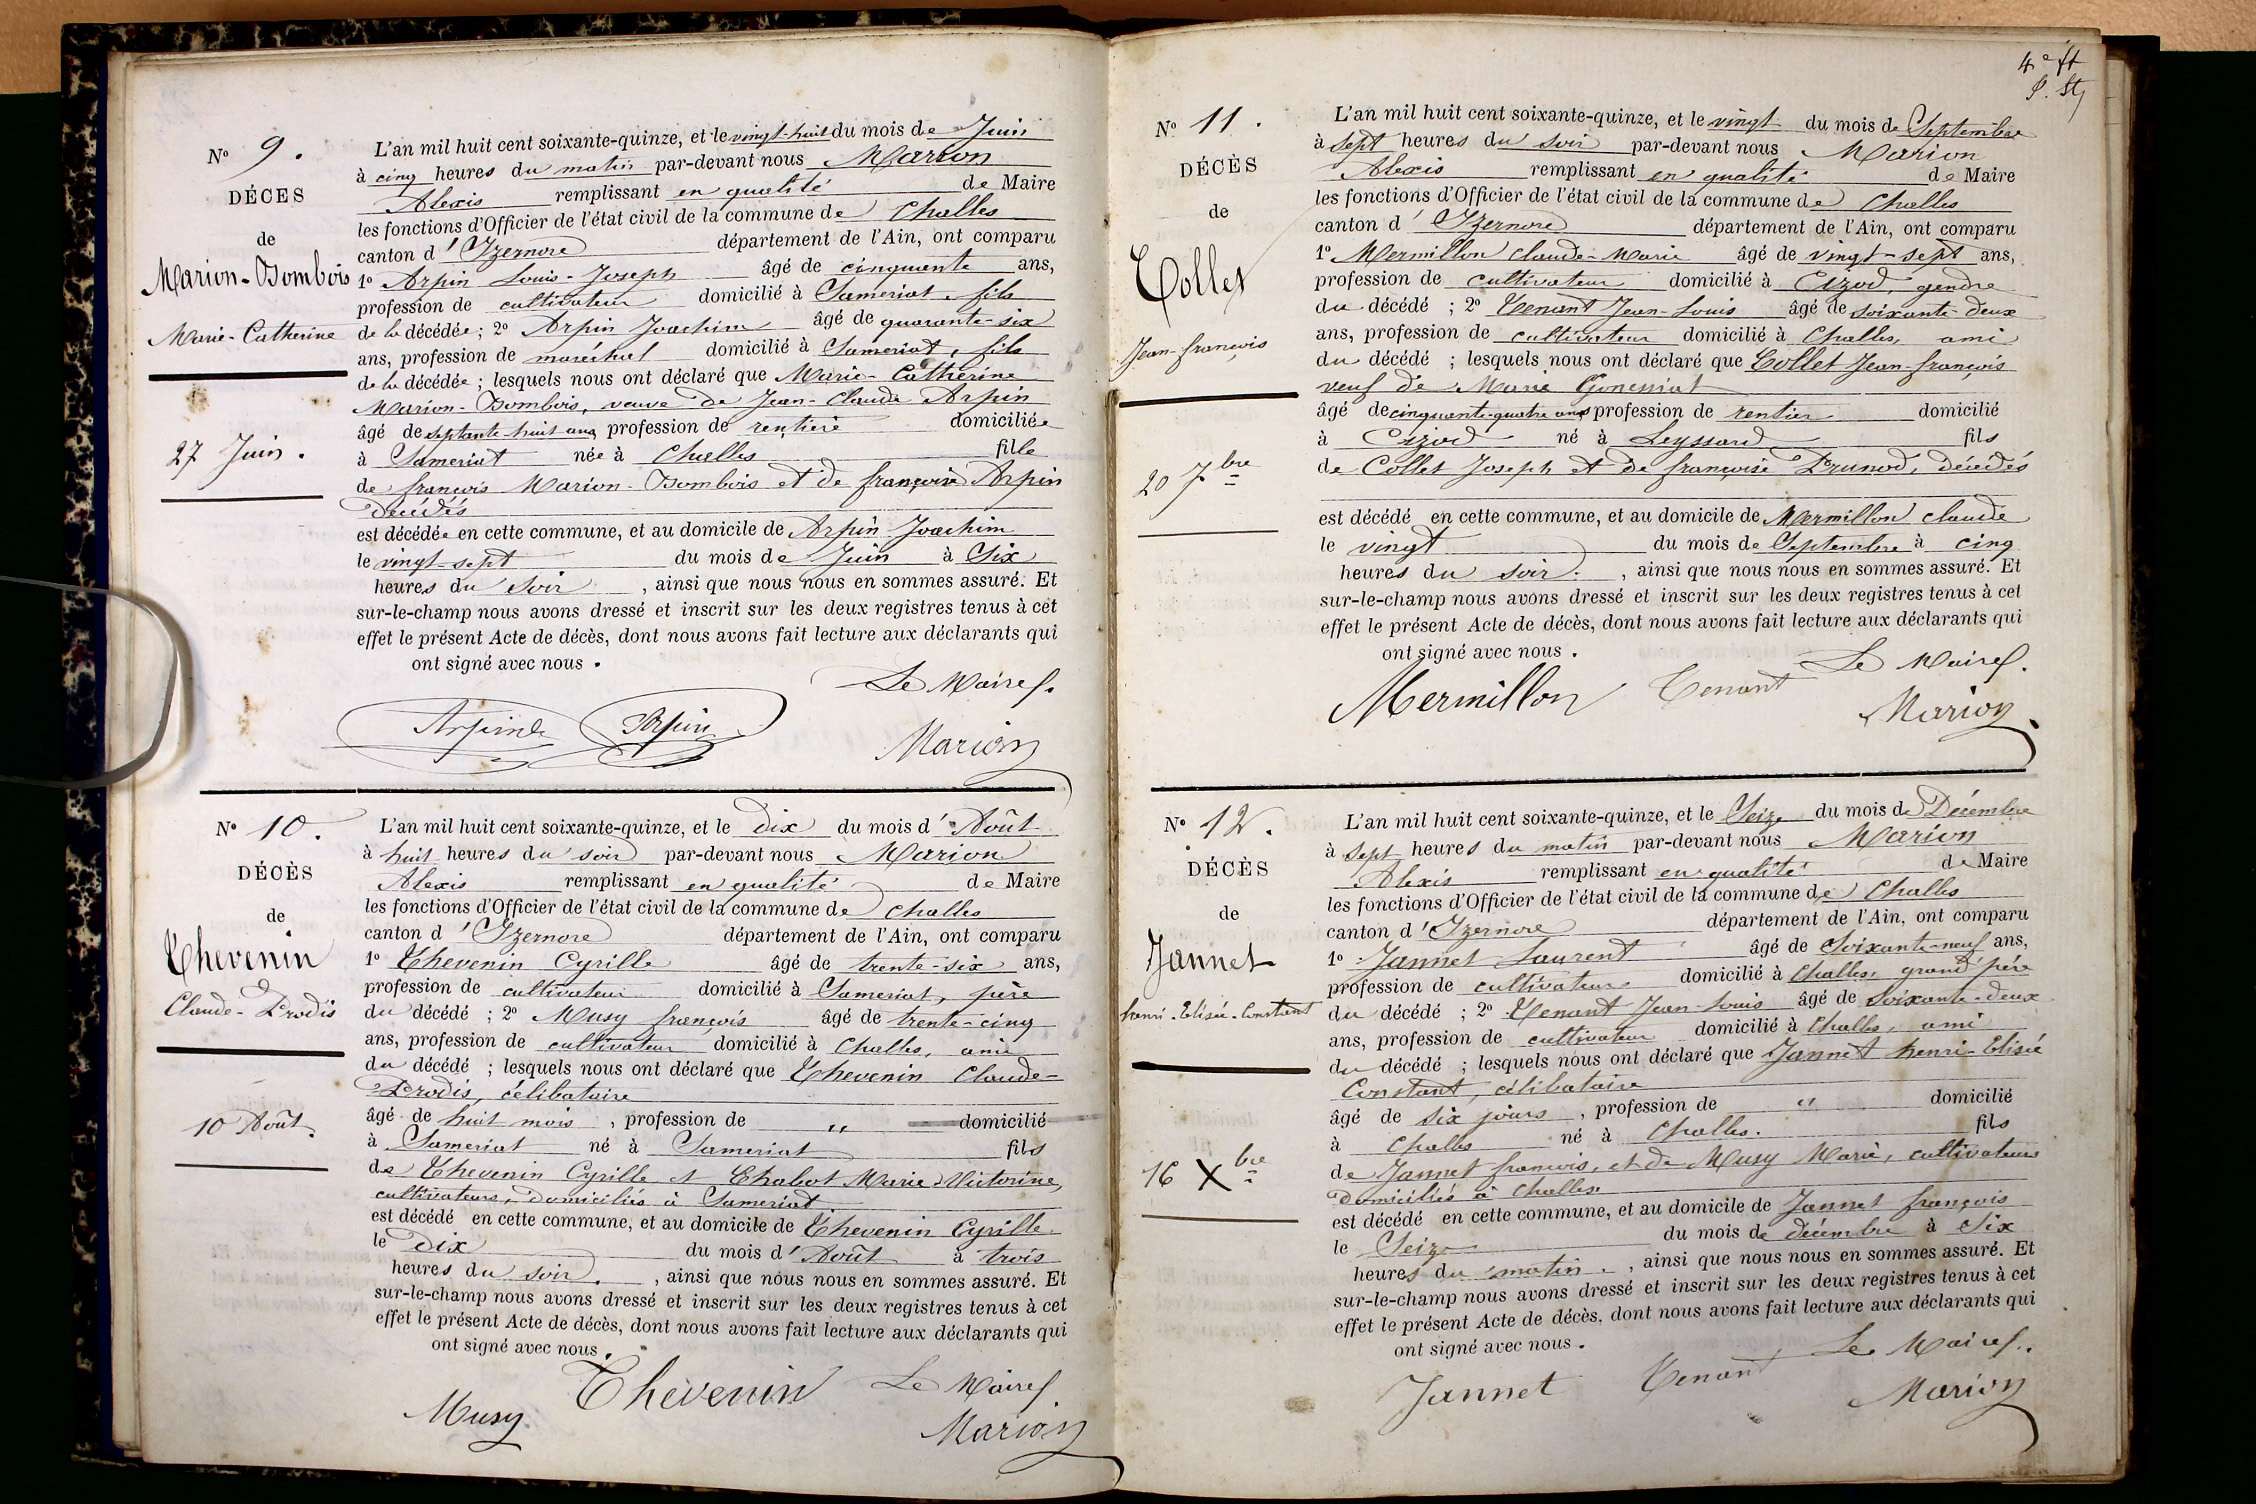 N° 9.
DÉCES
de
Marion-Bombois
Marie-Catherine
27 Juin.
L'an mil huit cent soixante-quinze, et le vingt-huit du mois de Juin
à cinq heures du matin par-devant nous Marion
Alexis remplissant en qualité de Maire
les fonctions d'Officier de l'état civil de la commune de Challes
canton d'Izernore département de l'Ain, ont comparu
1° Arpin Louis-Joseph âgé de cinquante ans,
profession de cultivateur domicilié à Samériat, fils
de la décédée; 2° Arpin Joachim âgé de quarante-six
ans, profession de maréchal domicilié à Samériat, fils
de la décédée; lesquels nous ont déclaré que Marie-Catherine
Marion-Bombois, veuve de Jean-Claude Arpin
âgé de septante huit ans profession de rentière domiciliée
à Samériat née à Challes fille
de françois Marion-Bombois et de françoise Arpin
décédés
est décédée en cette commune, et au domicile de Arpin Joachim
le vingt-sept du mois de Juin à Six
heures du soir, ainsi que nous nous en sommes assuré. Et
sur-le-champ nous avons dressé et inscrit sur les deux registres tenus à cet
effet le présent Acte de décès, dont nous avons fait lecture aux déclarants qui
ont signé avec nous.
Le Maire
Arpin Arpin
Marion
N° 10.
DÉCÈS
de
Thevenin
Claude-Prodis
10 Août.
L'an mil huit cent soixante-quinze, et le dix du mois d'Août
à huit heures du soir par-devant nous Marion
Alexis remplissant en qualité de Maire
les fonctions d'Officier de l'état civil de la commune de Challes
canton d'Izernore département de l'Ain, ont comparu
1° Thevenin Cyrille âgé de trente-six ans,
profession de cultivateur domicilié à Samériat, père
du décédé ; 2° Musy françois âgé de trente-cinq
ans, profession de cultivateur domicilié à Challes, ami
du décédé ; lesquels nous ont déclaré que Thevenin Claude-
Prodis, célibataire
âgé de huit mois, profession de " domicilié
à Samériat né à Samériat fils
de Thevenin Cyrille et Chabot Marie Victorine,
cultivateurs, domiciliés à Samériat
est décédé en cette commune, et au domicile de Thevenin Cyrille
le dix du mois d'Août à trois
heures du soir., ainsi que nous nous en sommes assuré. Et
sur-le-champ nous avons dressé et inscrit sur les deux registres tenus à cet
effet le présent Acte de décès, dont nous avons fait lecture aux déclarants qui
ont signé avec nous.
Thévenin Le Maire
Musy Marion
N° 11.
DÉCÈS
de
Collet
Jean-françois
20 7bre
L'an mil huit cent soixante-quinze, et le vingt du mois de Septembre
à sept heures du soir par-devant nous Marion
Alexis remplissant en qualité de Maire
les fonctions d'Officier de l'état civil de la commune de Challes
canton d'Izernore département de l'Ain, ont comparu
1° Mermillon Claude-Marie âgé de vingt-sept ans,
profession de cultivateur domicilié à Cizod, gendre
du décédé ; 2° Tenant Jean-Louis âgé de soixante-deux
ans, profession de cultivateur domicilié à Challes, ami
du décédé ; lesquels nous ont déclaré que Collet Jean-françois
veuf de Marie Gonessiat
âgé de cinquante-quatre ans profession de rentier domicilié
à Cizod né à Leyssard fils
de Collet Joseph et de françoise Prunod, décédés
est décédé en cette commune, et au domicile de Mermillon claude
le vingt du mois de Septembre à cinq
heures du soir., ainsi que nous nous en sommes assuré. Et
sur-le-champ nous avons dressé et inscrit sur les deux registres tenus à cet
effet le présent Acte de décès, dont nous avons fait lecture aux déclarants qui
ont signé avec nous.
Le Maire
Mermillon Tenant
Marion
N° 12.
DÉCÈS
de
Jannet
henri-Elisée-Constant
16 Xbre
L'an mil huit cent soixante-quinze, et le Seize du mois de Décembre
à sept heures du matin par-devant nous Marion
Alexis remplissant en qualité de Maire
les fonctions d'Officier de l'état civil de la commune de Challes
canton d'Izernore département de l'Ain, ont comparu
1° Jannet Laurent âgé de Soixante-neuf ans,
profession de cultivateur domicilié à Challes, grand père
du décédé ; 2° Tenant Jean-Louis âgé de Soixante-deux
ans, profession de cultivateur domicilié à Challes, ami
du décédé ; lesquels nous ont déclaré que Jannet henri-Elisée
Constant, célibataire
âgé de six jours, profession de " domicilié
à Challes né à Challes. fils
de Jannet françois, et de Musy Marie, cultivateurs
domiciliés à Challes
est décédé en cette commune, et au domicile de Jannet françois
le Seize du mois de décembre à Six
heures du matin., ainsi que nous nous en sommes assuré. Et
sur-le-champ nous avons dressé et inscrit sur les deux registres tenus à cet
effet le présent Acte de décès, dont nous avons fait lecture aux déclarants qui
ont signé avec nous.
Le Maire
Jannet Tenant
Marion